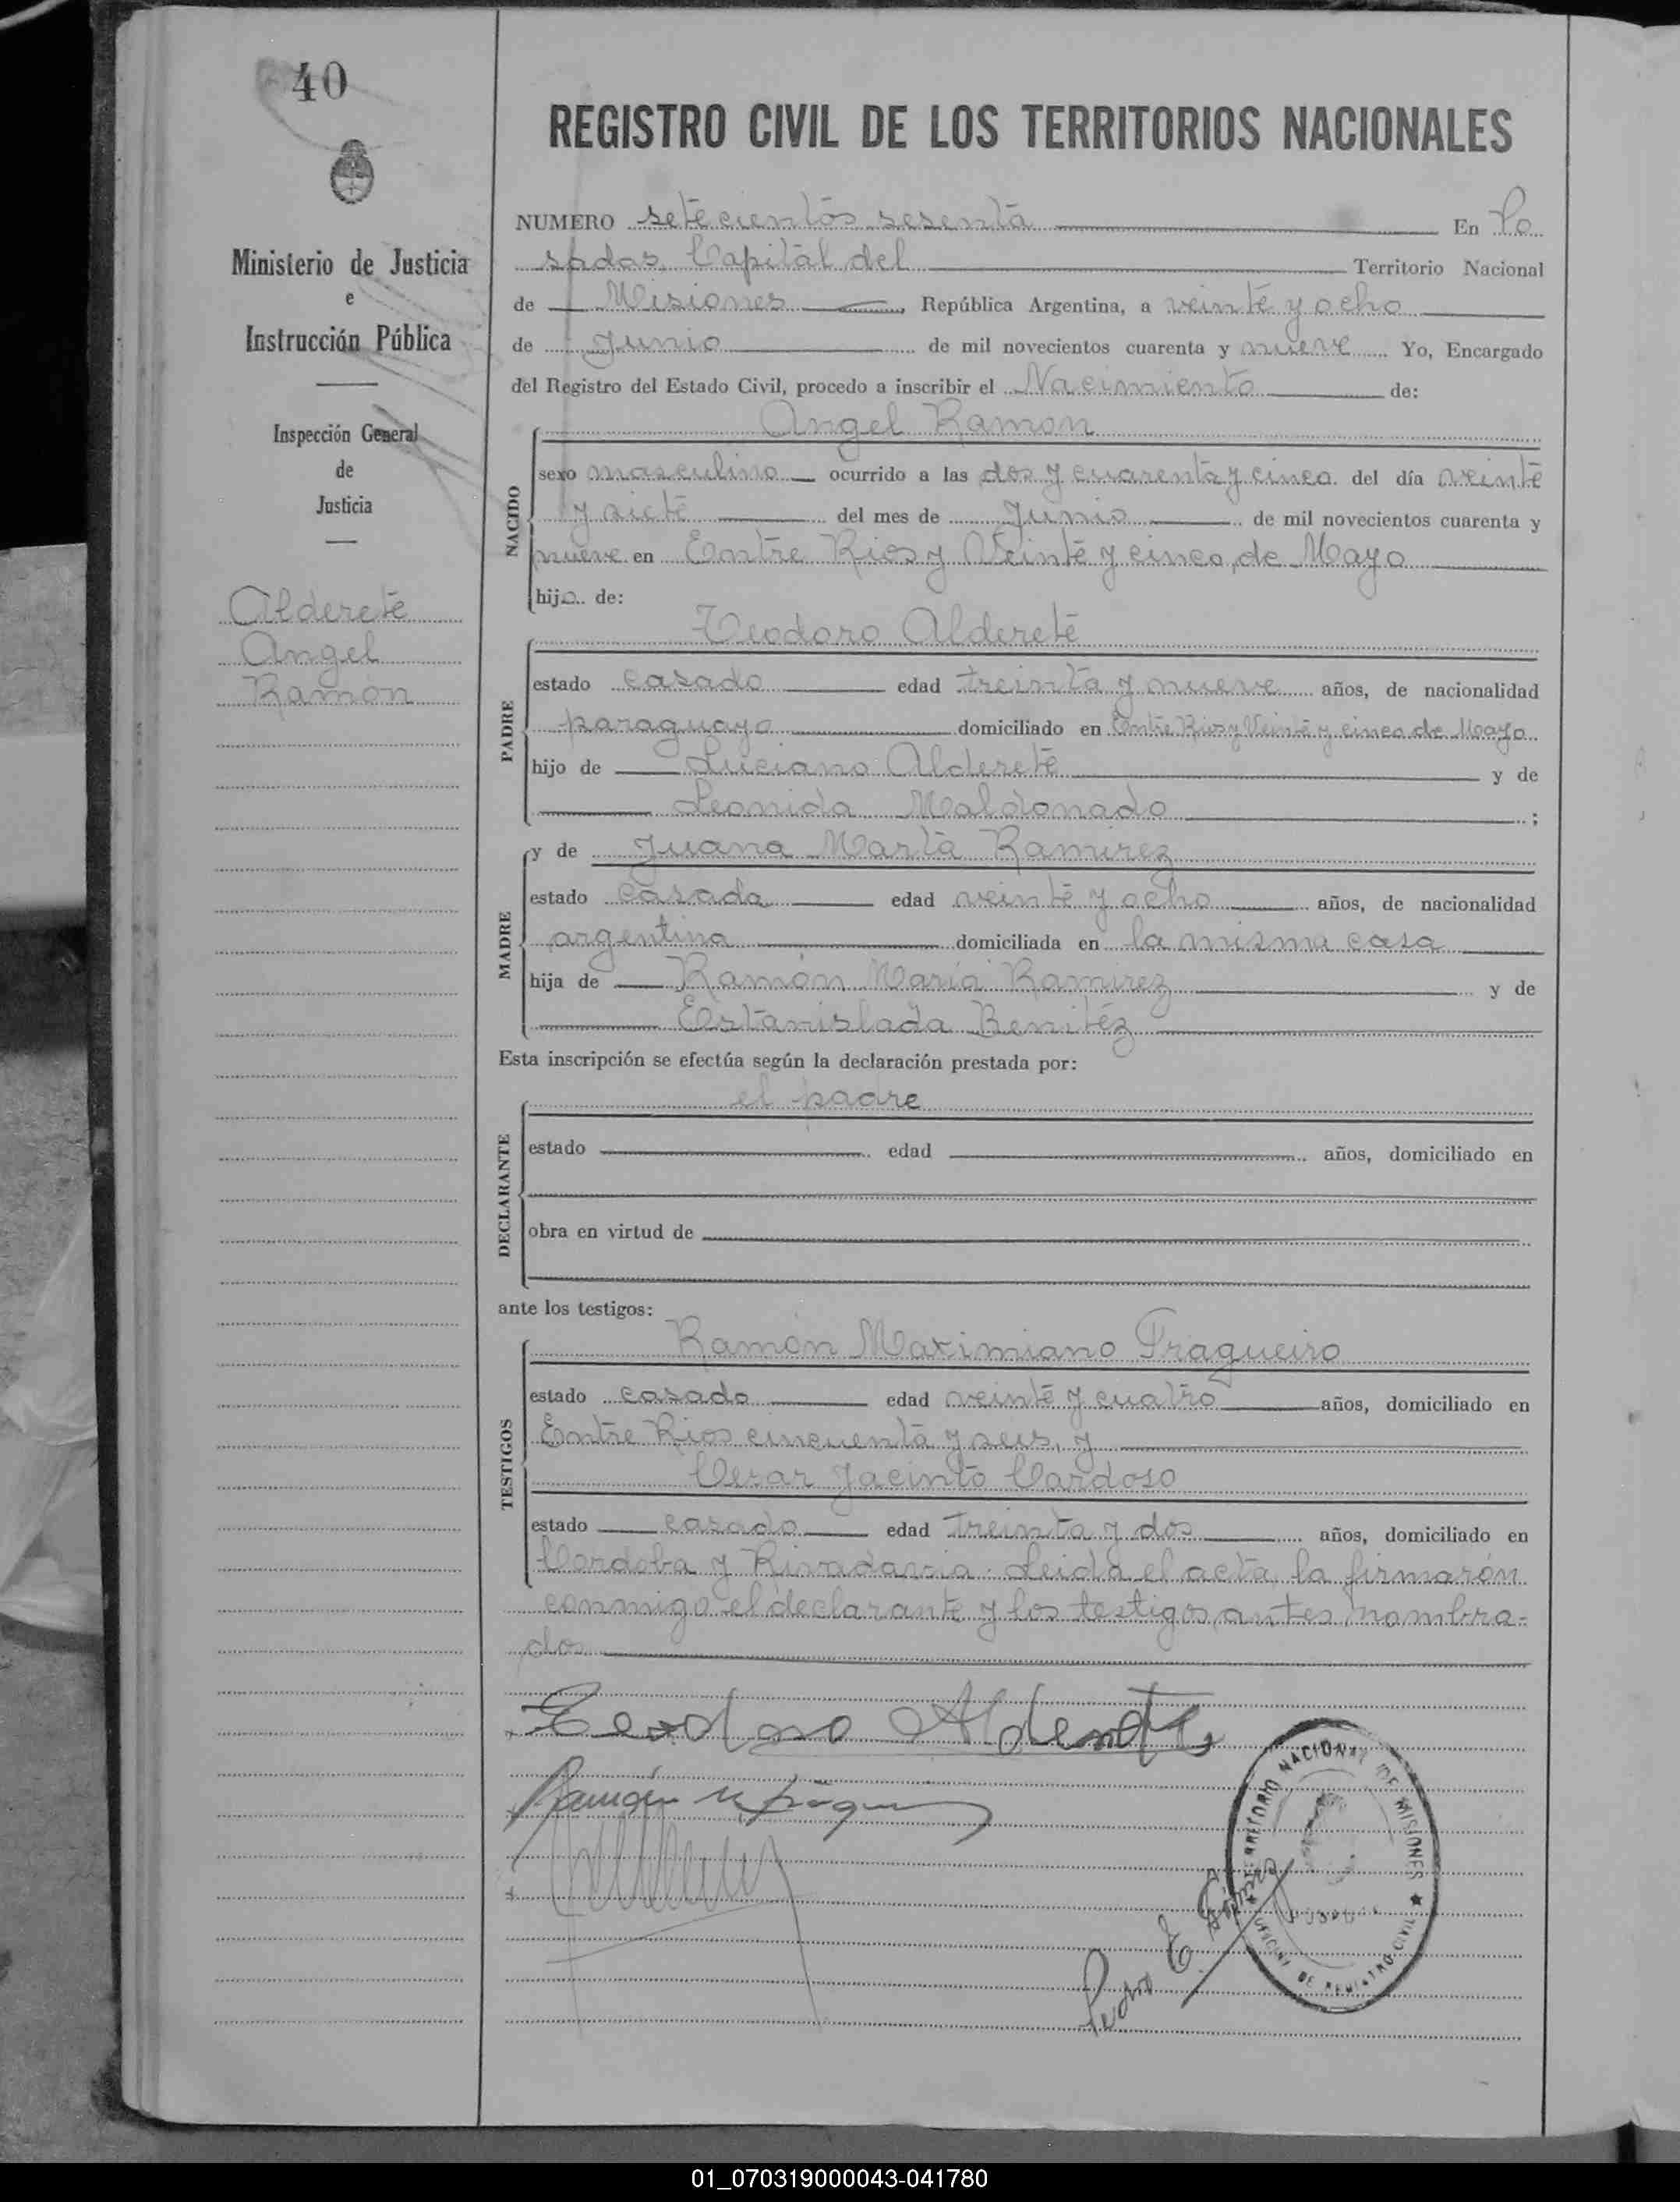 40
Ministerio de Justicia
e
Instrucción Pública
Inspección General
de
Justicia
Alderete
Angel
Ramón
REGISTRO CIVIL DE LOS TERRITORIOS NACIONALES
NUMERO setecientos sesenta En Po
sadas, Capital del Territorio Nacional
de Misiones, República Argentina, a veinte y ocho
de Junio de mil novecientos cuarenta y nueve Yo, Encargado
del Registro del Estado Civil, procedo a inscribir el Nacimiento de:
NACIDO
Angel Ramon
sexo masculino ocurrido a las dos y cuarenta y cinco del día veinte
y siete del mes de Junio de mil novecientos cuarenta y
nueve en Entre Rios y Veinte y cinco de Mayo
hijo de:
PADRE
Teodoro Alderete
estado casado edad treinta y nueve años, de nacionalidad
paraguayo domiciliado en Entre Rios y Veinte y cinco de Mayo
hijo de Luciano Alderete y de
Leonida Maldonado ;
MADRE
y de Juana Marta Ramirez
estado casada edad veinte y ocho años, de nacionalidad
argentina domiciliada en la misma casa
hija de Ramón Maria Ramirez y de
Estanislada Benitéz
Esta inscripción se efectúa según la declaración prestada por:
DECLARANTE
el padre
estado edad años, domiciliado en
obra en virtud de
ante los testigos:
TESTIGOS
Ramón Maximiano Fragueiro
estado casado edad veinte y cuatro años, domiciliado en
Entre Rios cincuenta y seis, y
Cesar Jacinto Cardoso
estado casado edad treinta y dos años, domiciliado en
Cordoba y Rivadavia. Leida el acta, la firmarón
conmigo el declarante y los testigos antes nombra-
dos
Teodoro Alderete
Ramón M Fragu
TERRITORIO NACIONAL DE MISIONES
OFICINA DE REGISTRO CIVIL
Pedro E
01_070319000043-041780